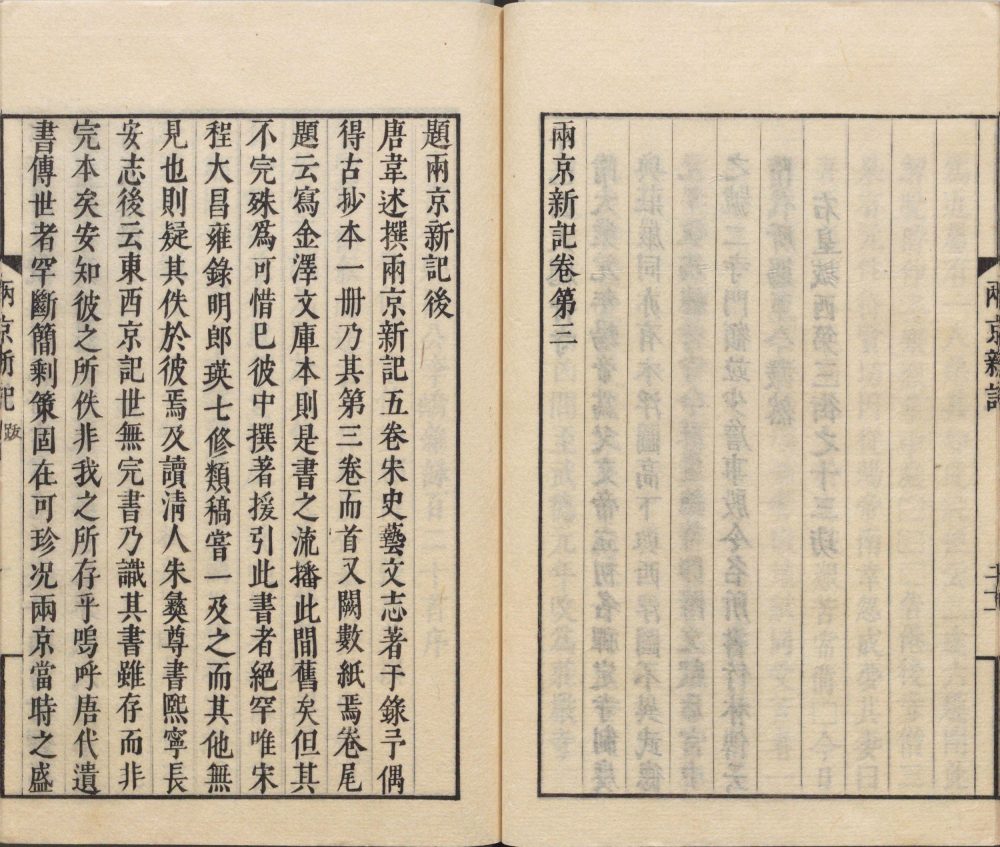 兩京新記卷第三
兩京新記
題兩京新記後
唐韋述撰兩京新記五卷宋史藝文志著于錄予偶
得古抄本一册乃其第三卷而首又闕數紙焉卷尾
題云寫金澤文庫本則是書之流播此間舊矣但其
不完殊爲可惜已彼中撰著援引此書者絕罕唯宋
程大昌雍錄明郎瑛七修類稿嘗一及之而其他無
見也則疑其佚於彼焉及讀淸人朱彝尊書熙寧長
安志後云東西京記世無完書乃識其書雖存而非
完本矣安知彼之所佚非我之所存乎嗚呼唐代遺
書傳世者罕斷簡剩策固在可珍况兩京當時之盛
兩京新記 跋